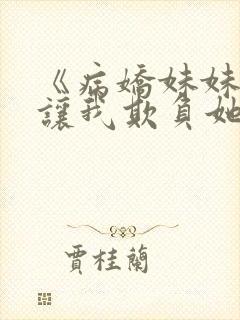 《病嬌妹妹
讓我欺負她
賈桂蘭